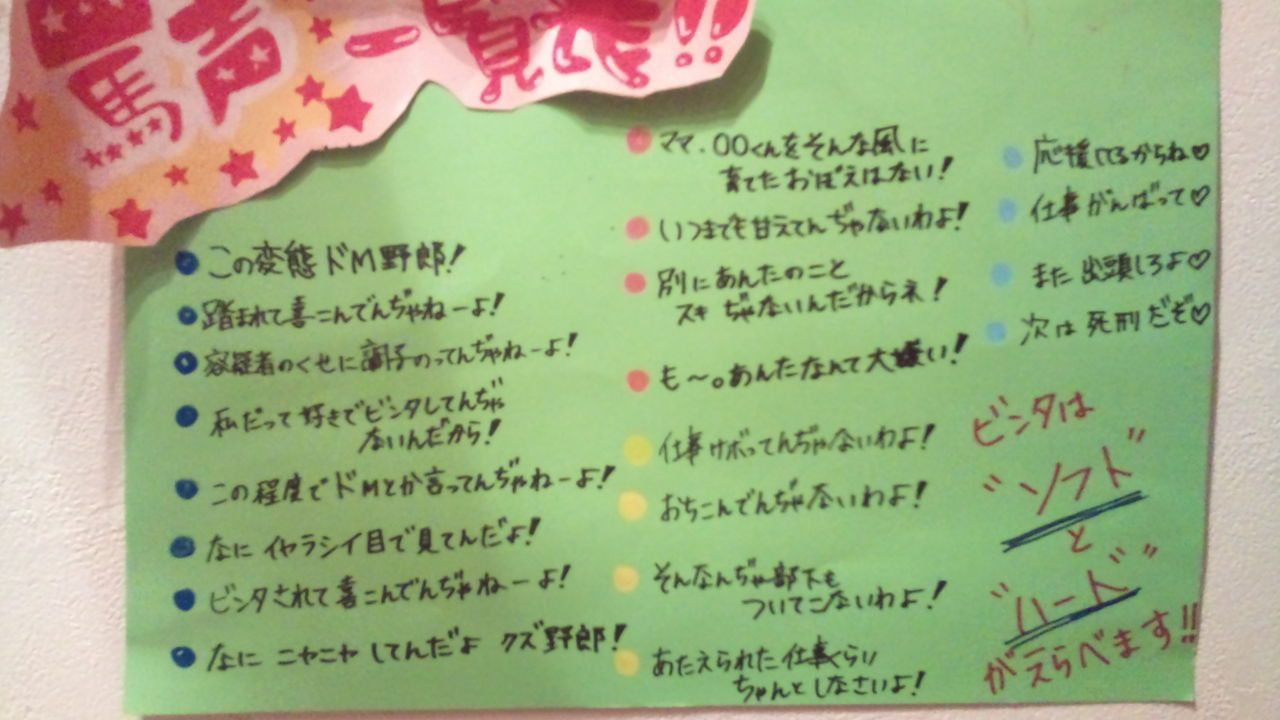 罵声一覧表!!
この変態ドM野郎!
踏まれて喜こんでんぢゃねーよ!
容疑者のくせに調子のってんぢゃねーよ!
私だって好きでビンタしてんぢゃ
ないんだから!
この程度でドMとか言ってんぢゃねーよ!
なに イヤラシイ目で見てんだよ!
ビンタされて喜こんでんぢゃねーよ!
なに ニヤニヤ してんだよ クズ野郎!
ママ、〇〇くんをそんな風に
育てたおぼえはない!
いつまでも甘えてんぢゃないわよ!
別にあんたのこと
スキ ぢゃないんだからネ!
も〜。あんたなんて大嫌い!
仕事サボってんぢゃないわよ!
おちこんでんぢゃないわよ!
そんなんぢゃ部下も
ついてこないわよ!
あたえられた仕事くらい
ちゃんとしなさいよ!
応援してるからね♡
仕事がんばって♡
また出頭しろよ♡
次は死刑だぞ♡
ビンタは
"ソフト"
と
"ハード"
がえらべます!!